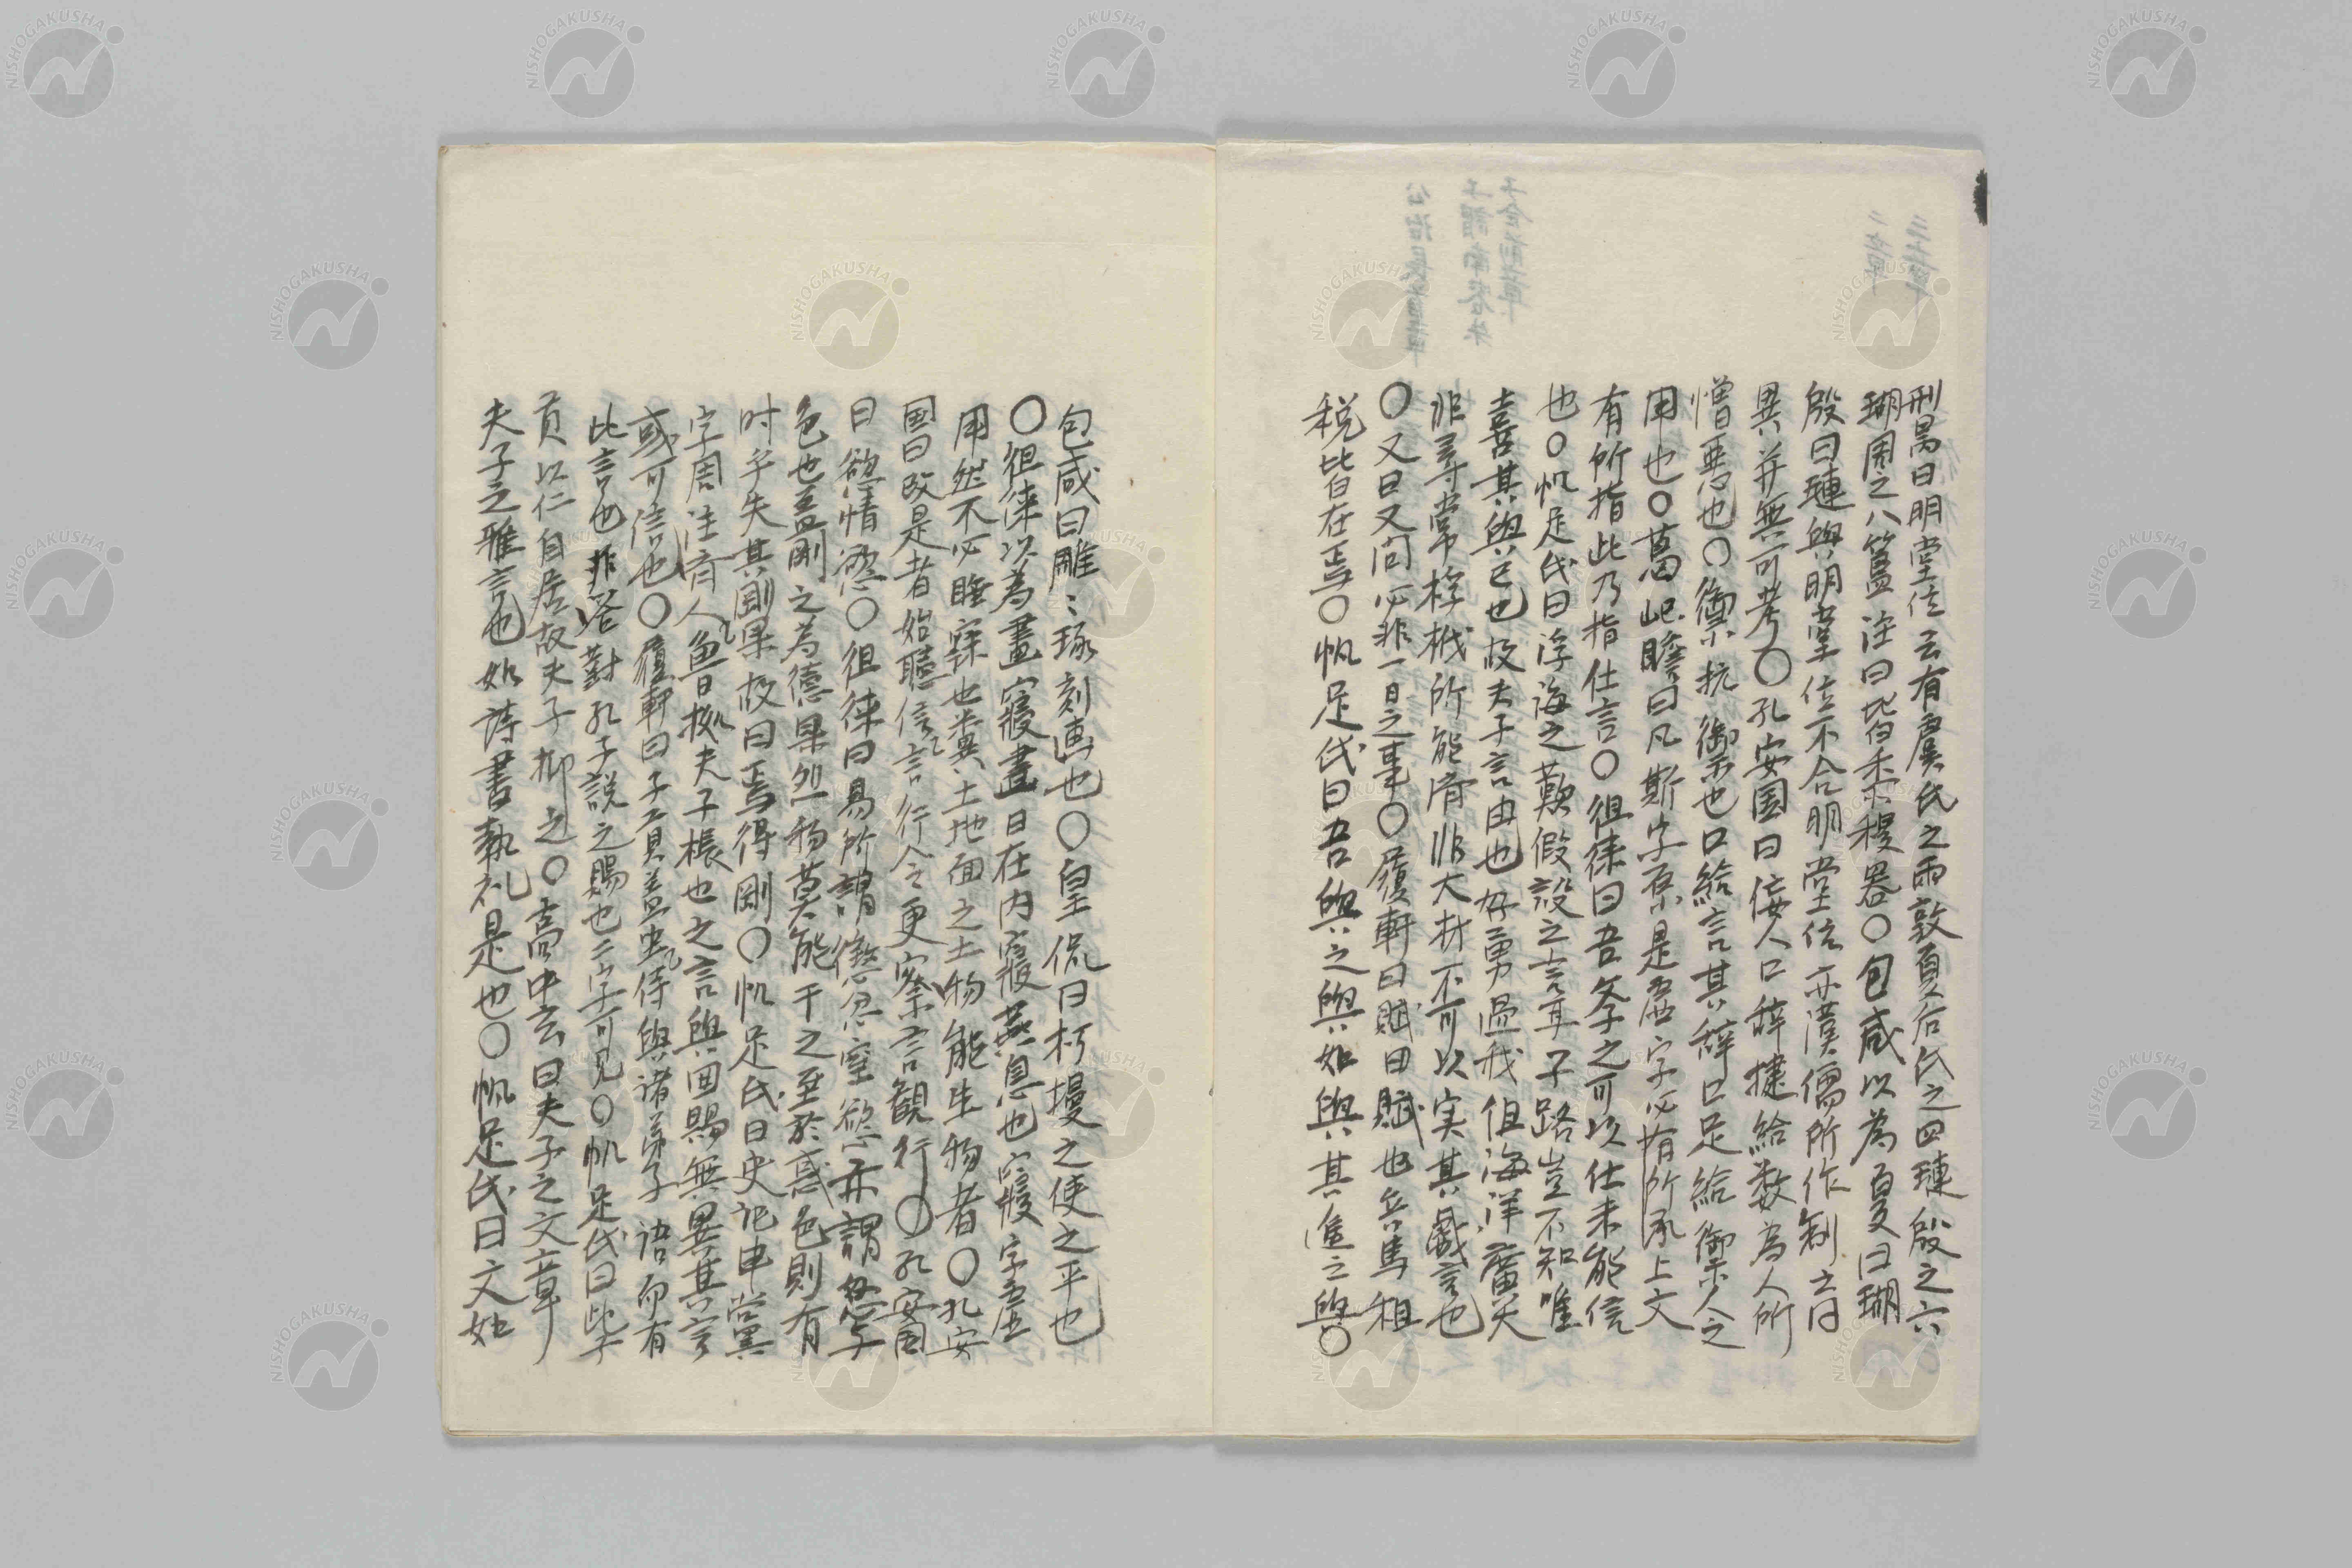 刑昺曰明堂位云有虞氏之両敦夏后氏之四璉殷之六
瑚周之八簋注曰皆黍稷器〇包咸以為夏曰瑚
殷曰璉與明堂位不合明堂位亦漢儒所作制之同
異并無可考〇孔安国曰佞人口辞捷給数為人所
憎悪也〇禦抗禦也口給言其辞口足給禦人之
用也〇葛屺瞻曰凡斯字原是虚字必有所承上文
有所指此乃指仕言〇徂徠曰吾斧之可以仕未能信
也〇帆足氏曰浮海之歎假設之言耳子路豈不知唯
喜其與己也故夫子言由也好勇過我但海洋廣大
非尋常桴栰所能済非大材不可以実其戯言也
〇又曰又问必非一日之事〇履軒曰賦田賦也兵馬租
税皆在焉〇帆足氏曰吾與之與如與其進之與〇
包咸曰雕〻琢刻画也〇皇侃曰杇墁之使之平也
〇徂徠以為晝寢晝日在内寢燕息也寢字虚
用然不必睡寐也糞土地面之土物能生物者〇孔安
国曰改是者始聴信言行今更察言観行〇孔安国
曰慾情慾〇徂徠曰易所謂懲忿窒慾亦謂忿
色也盖剛之為徳果烈物莫能干之至於惑色則有
时乎失其剛果故曰焉得剛〇帆足氏曰史记申党
字周注有人魚曰棖夫子棖也之言與回賜無異其言
或可信也〇履軒曰子貢盖侍與諸弟子语而有
此言也非答對孔子説之賜也二字可見〇帆足氏曰此子
貢以仁自居故夫子抑之〇嵩中玄曰夫子之文章
夫子之雅言也如詩書執礼是也〇帆足氏曰文如